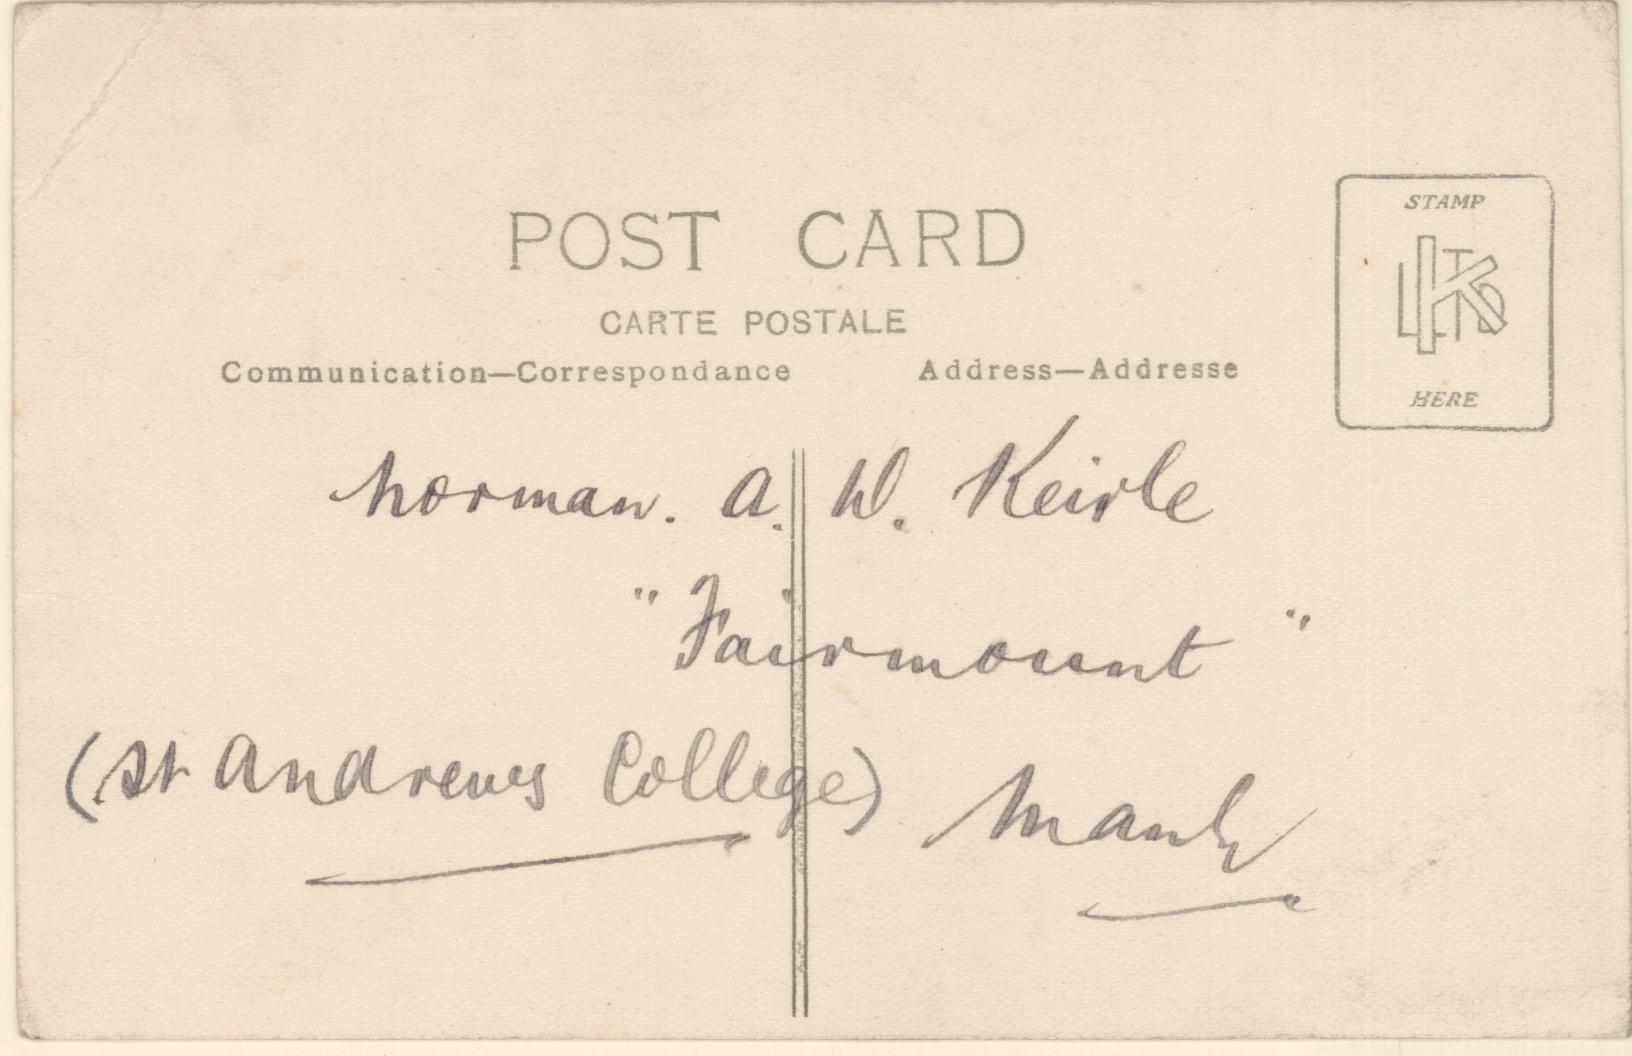 POST CARD
CARTE POSTALE
Communication—Correspondance
Address—Addresse
STAMP
KLTD
HERE
Norman. A. W. Keirle
"Fairmount"
(St Andrews College)
Manly